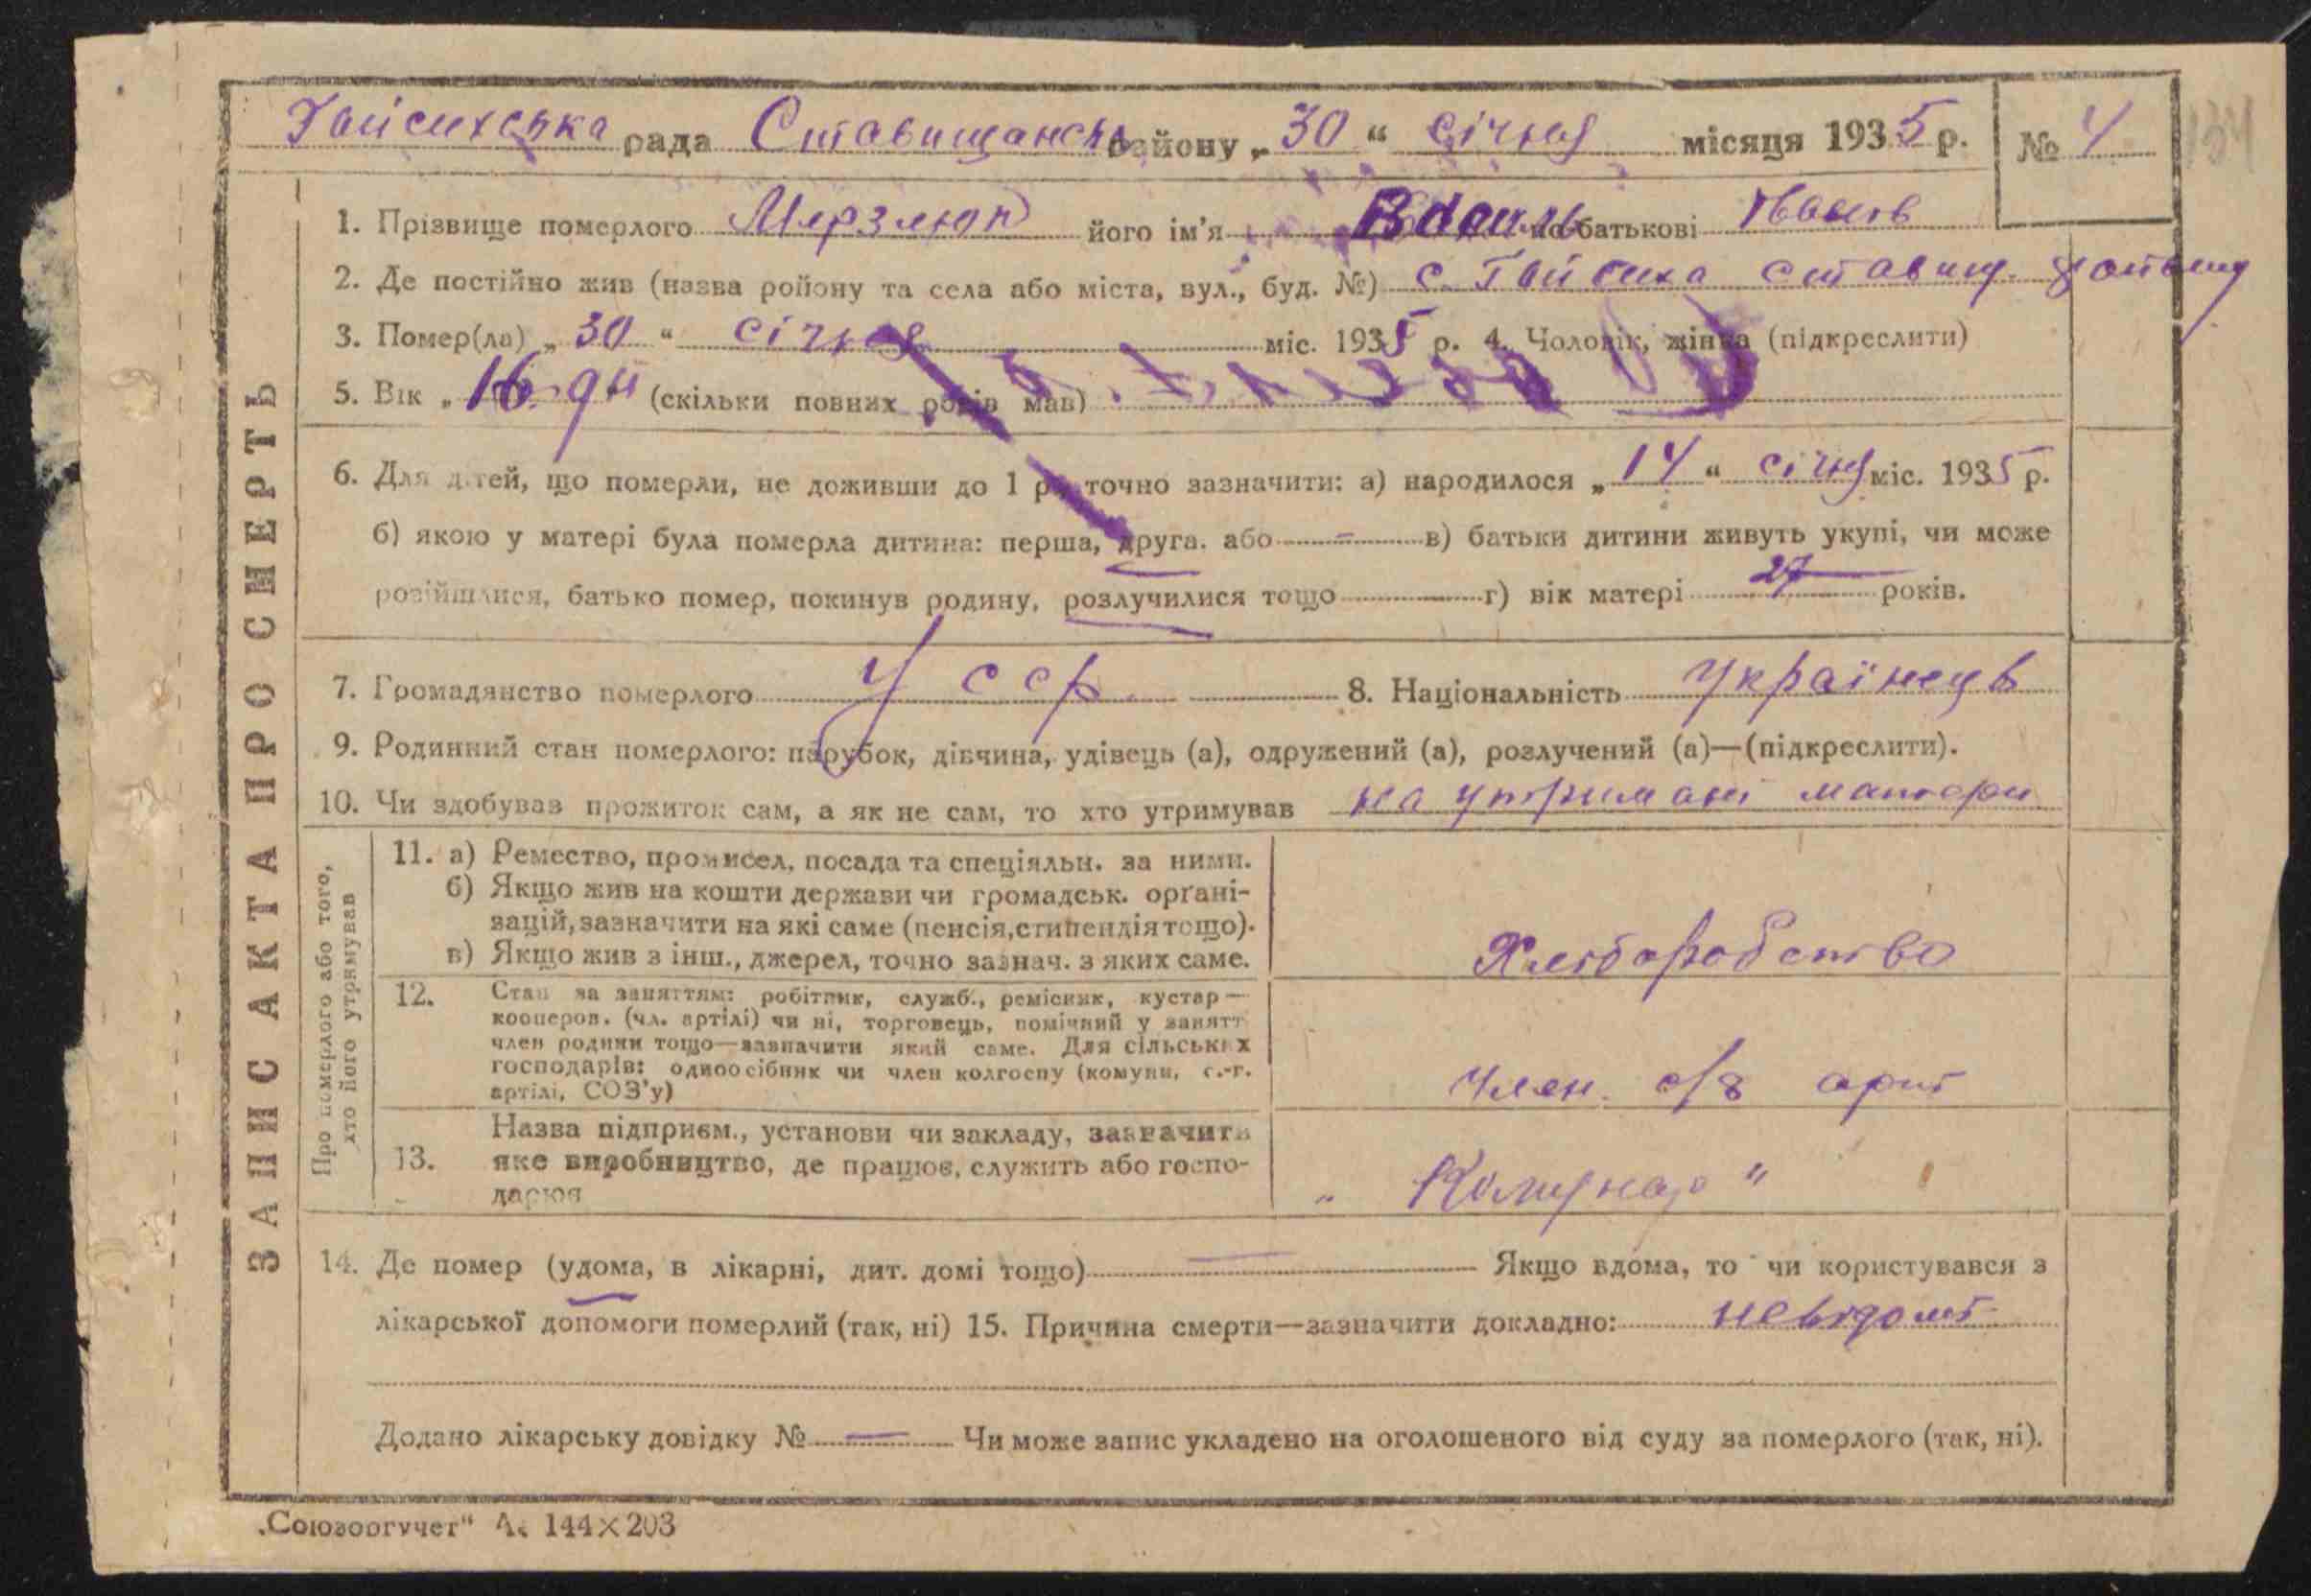 Гайсихська рада Ставищансь району „30“ січня місяця 1935 р. № 4
134
ЗАПИС АКТА ПРО СМЕРТЬ
1. Прізвище померлого Мерзлюк його ім'я по батькові Іванів
2. Де постійно жив (назва району та села або міста, вул., буд. №) с. Гайсиха ставищ. району
3. Помер(ла) „30“ січня міс. 1935 р. 4. Чоловік, жінка (підкреслити)
5. Вік „16 дн (скільки повних років мав)
6. Для дітей, що померли, не доживши до 1 р. точно зазначити: а) народилося „14“ січня міс. 1935 р.
б) якою у матері була померла дитина: перша, друга. або – в) батьки дитини живуть укупі, чи може
розійшлися, батько помер, покинув родину, розлучилися тощо г) вік матері 27 років.
7. Громадянство померлого УССР 8. Національність Українець
9. Родинний стан померлого: парубок, дівчина, удівець (а), одружений (а), розлучений (а)—(підкреслити).
10. Чи здобував прожиток сам, а як не сам, то хто утримував на утримані матери
Про померлого або того,
хто його утримував
11. а) Ремество, промисел, посада та спеціяльн. за ними.
б) Якщо жив на кошти держави чи громадськ. орґані-
зацій, зазначити на які саме (пенсія, стипендія тощо).
в) Якщо жив з інш., джерел, точно зазнач. з яких саме.
Хліборобство
12. Стан за заняттям: робітник, служб., ремісник, кустар—
кооперов. (чл. артілі) чи ні, торговець, помічний у занятт
член родини тощо—зазначити який саме. Для сільських
господарів: одноосібник чи член колгоспу (комуни, с.-г.
артілі, СОЗ'у)
Член. с/г арт
13. Назва підприєм., установи чи закладу, зазначить
яке виробництво, де працює, служить або госпо-
дарює
„Комунар“
14. Де помер (удома, в лікарні, дит. домі тощо) — Якщо вдома, то чи користувався з
лікарської допомоги померлий (так, ні) 15. Причина смерти—зазначити докладно: невідомі
Додано лікарську довідку № — Чи може запис укладено на оголошеного від суду за померлого (так, ні).
„Союзоргучет“ 144×203